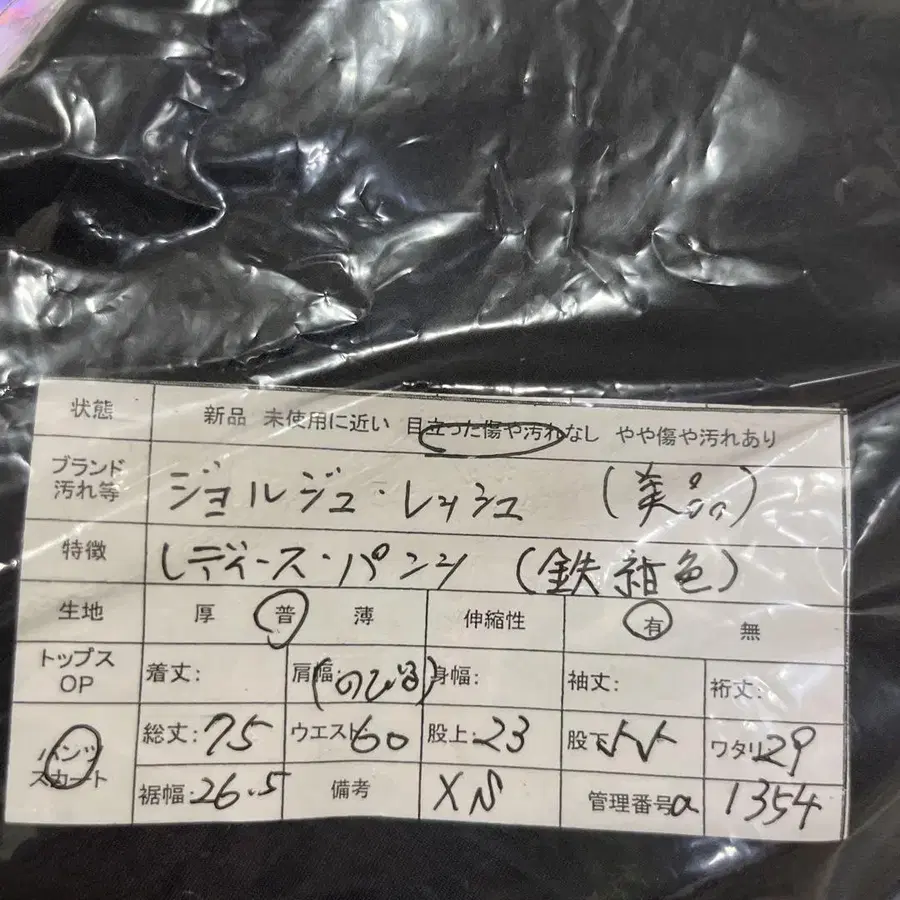 状態 新品 未使用に近い 目立った傷や汚れなし やや傷や汚れあり
ブランド 汚れ等 ジョルジュ・レッシュ (美品)
特徴 レディース・パンツ (鉄紺色)
生地 厚 普 薄 伸縮性 有 無
トップス OP 着丈: 肩幅: (のびる) 身幅: 袖丈: 裄丈:
パンツ スカート 総丈: 75 ウエスト 60 股上: 23 股下 ワタリ 29
裾幅: 26.5 備考 XS 管理番号 a 1354